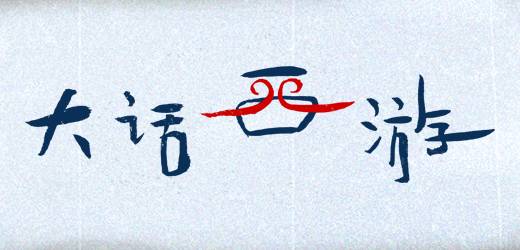 大话西游